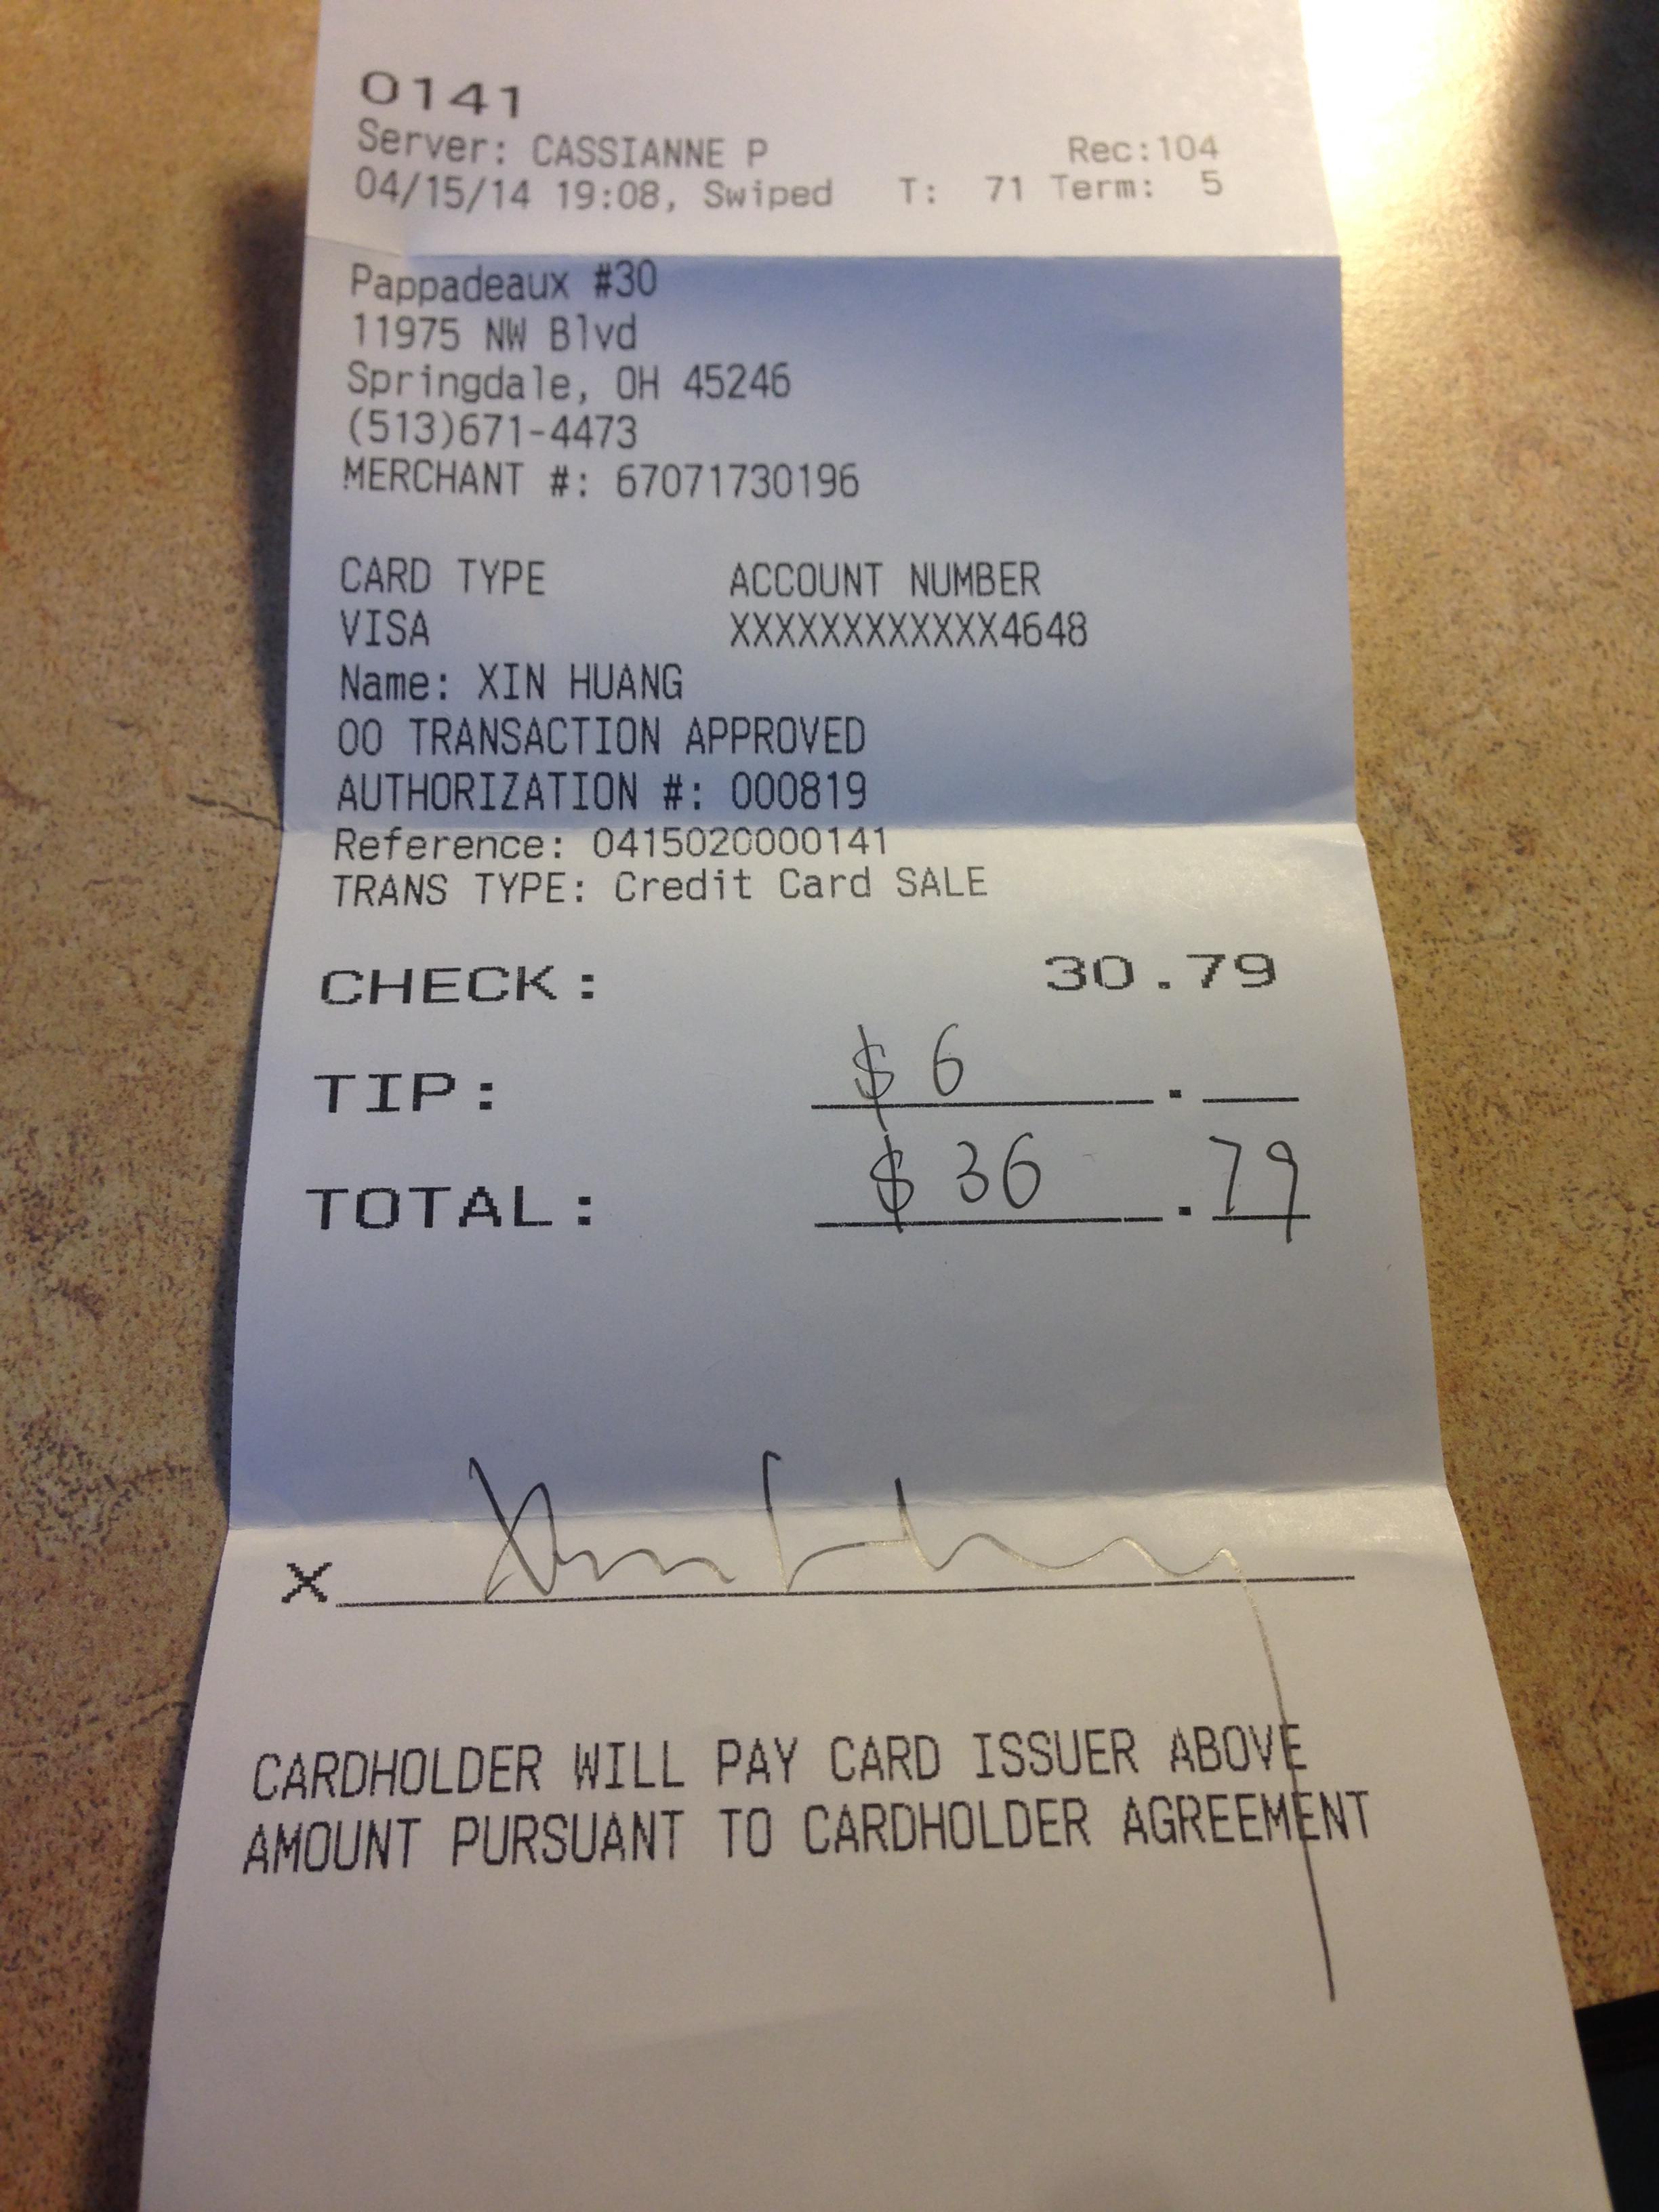 0141
Server: CASSIANNE P Rec:104
04/15/14 19:08, Swiped T: 71 Term: 5
Pappadeaux #30
11975 NW Blvd
Springdale, OH 45246
(513)671-4473
MERCHANT #: 67071730196
CARD TYPE ACCOUNT NUMBER
VISA XXXXXXXXXXXX4648
Name: XIN HUANG
00 TRANSACTION APPROVED
AUTHORIZATION #: 000819
Reference: 0415020000141
TRANS TYPE: Credit Card SALE
CHECK: 30.79
TIP: $ 6 .
TOTAL: $ 36 . 79
X
CARDHOLDER WILL PAY CARD ISSUER ABOVE
AMOUNT PURSUANT TO CARDHOLDER AGREEMENT